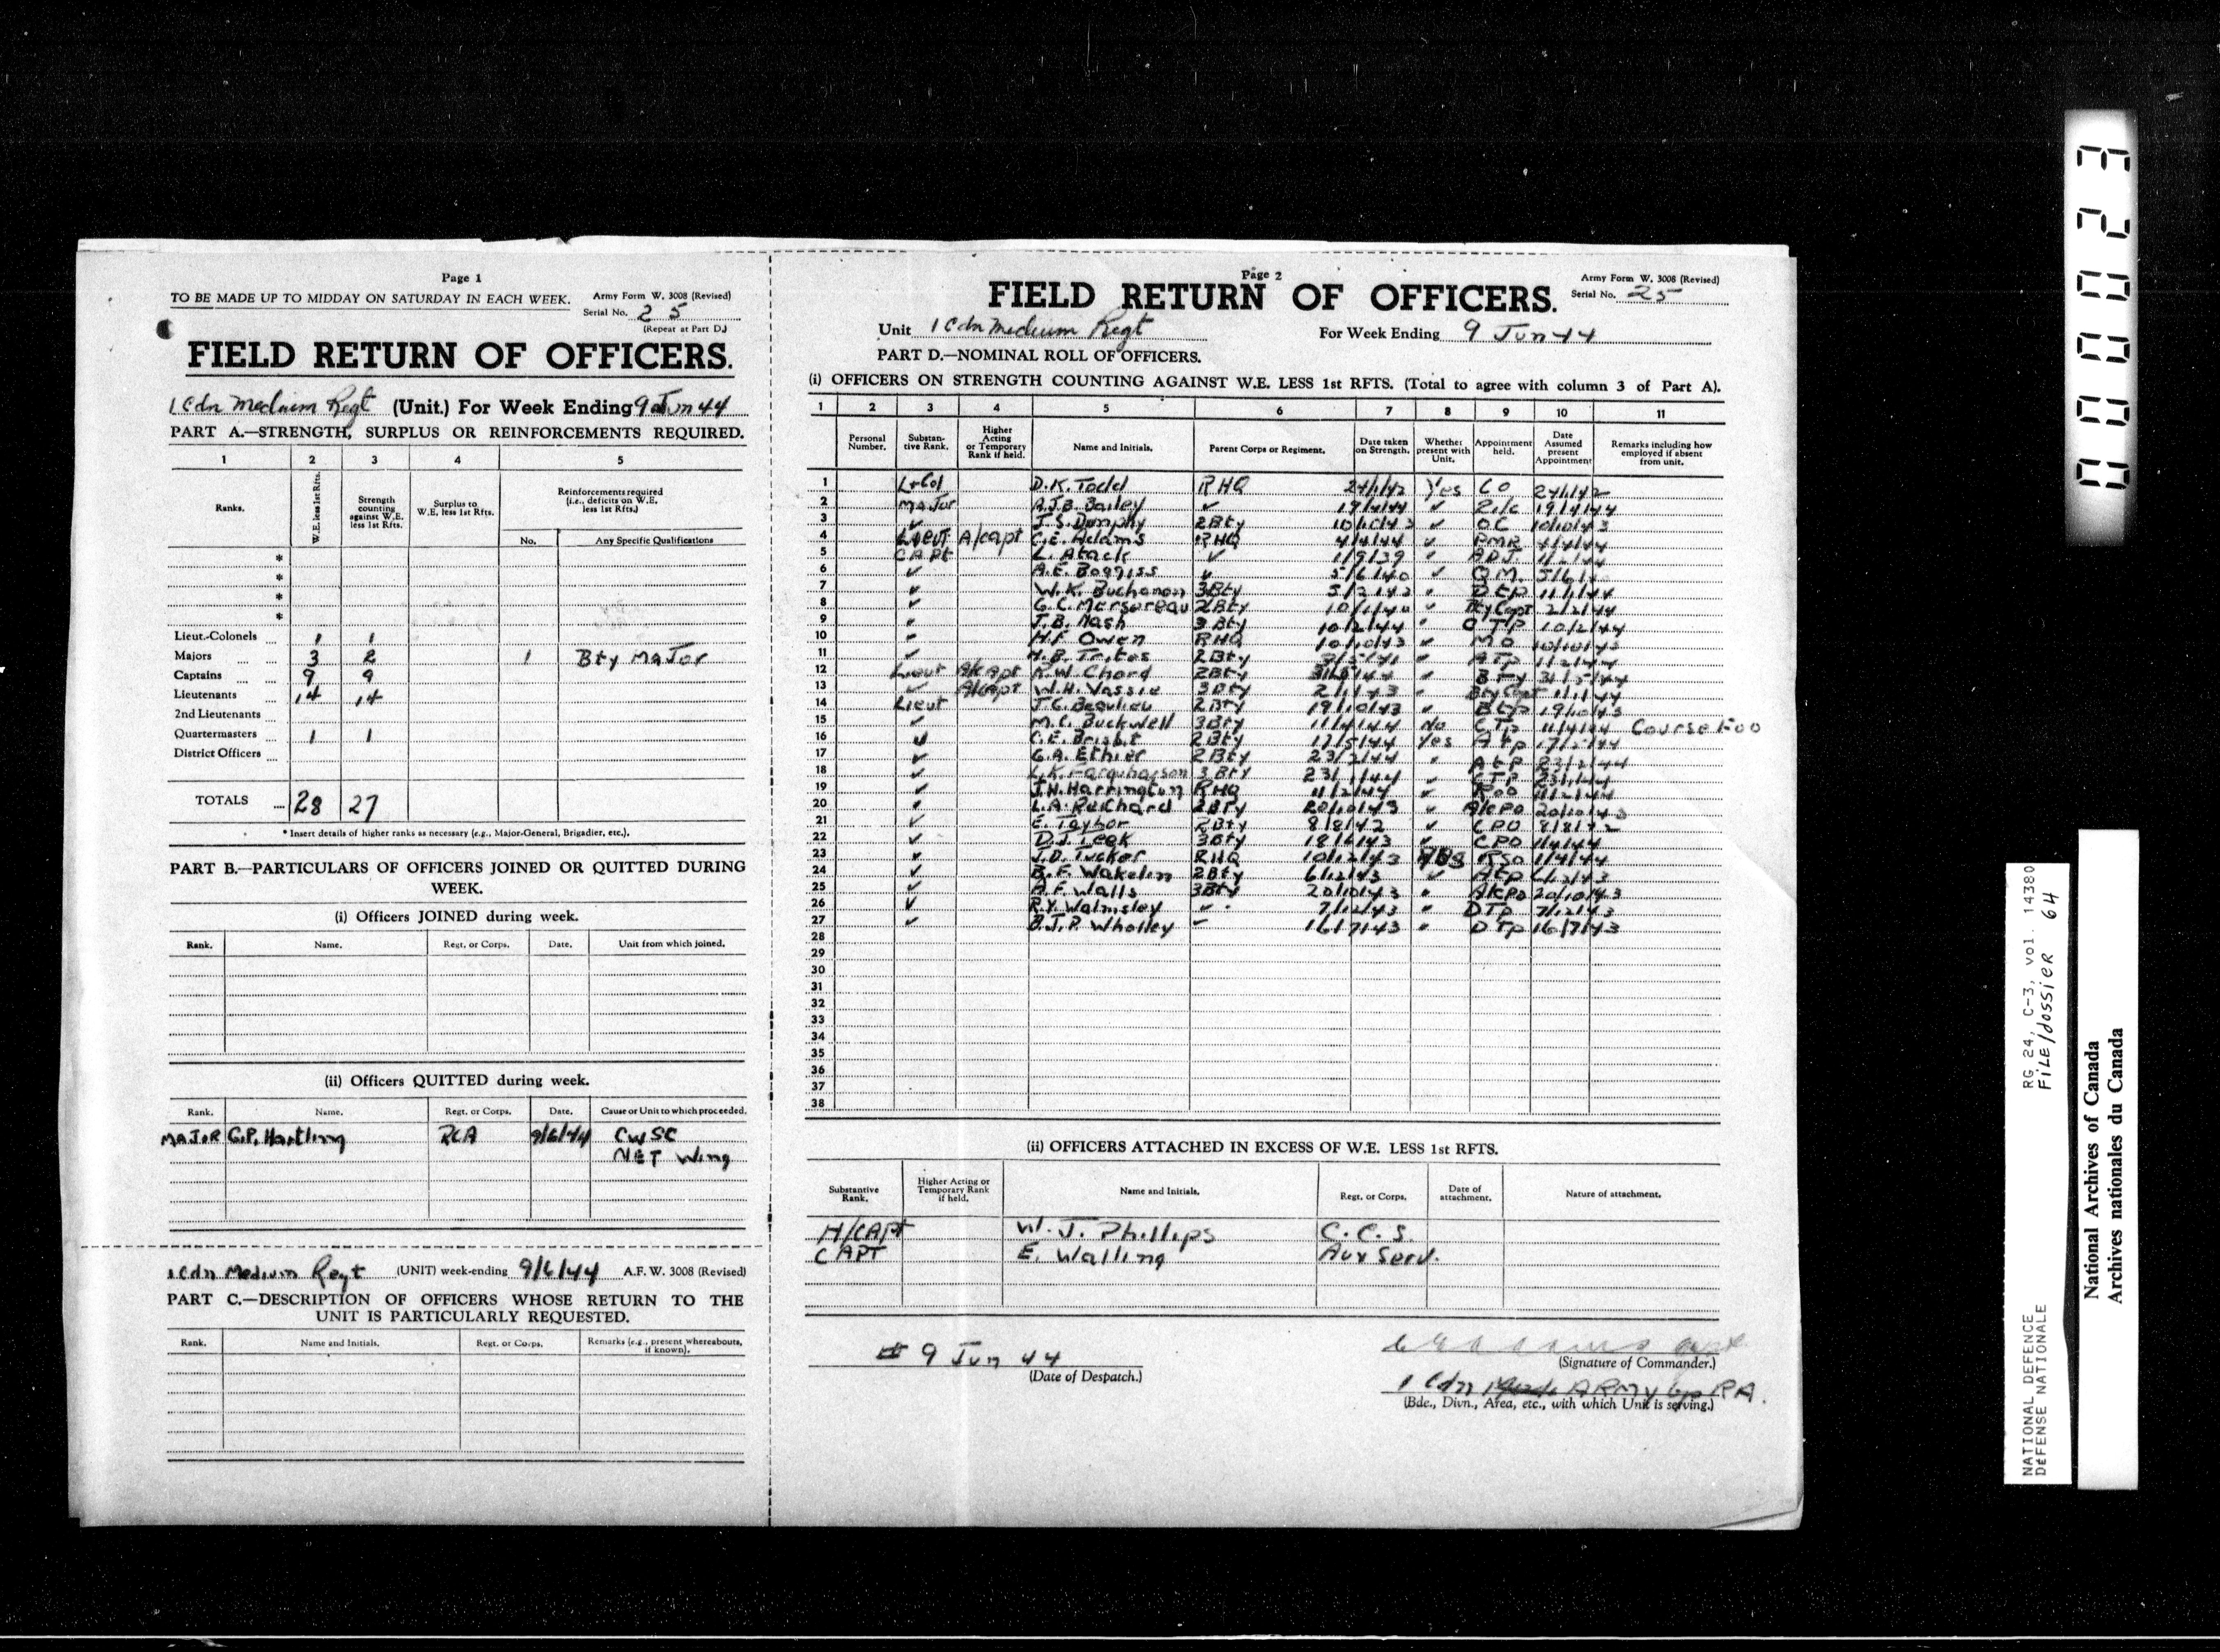 Page 1
TO BE MADE UP TO MIDDAY ON SATURDAY IN EACH WEEK.
Army Form W. 3008 (Revised)
Serial No. 25
(Repeat at Part D.)
FIELD RETURN OF OFFICERS.
1 Cdn Medium Regt (Unit.) For Week Ending 9 Jun 44
PART A.—STRENGTH, SURPLUS OR REINFORCEMENTS REQUIRED.
1 2 3 4 5
Ranks. W.E. less 1st Rfts. Strength counting against W.E. less 1st Rfts. Surplus to W.E. less 1st Rfts. Reinforcements required (i.e., deficits on W.E. less 1st Rfts.)
No. Any Specific Qualifications
*
*
*
*
Lieut.-Colonels 1 1
Majors 3 2 1 Bty Major
Captains 9 9
Lieutenants 14 14
2nd Lieutenants
Quartermasters 1 1
District Officers
TOTALS 28 27
* Insert details of higher ranks as necessary (e.g., Major-General, Brigadier, etc.).
PART B.—PARTICULARS OF OFFICERS JOINED OR QUITTED DURING WEEK.
(i) Officers JOINED during week.
Rank. Name. Regt. or Corps. Date. Unit from which joined.
(ii) Officers QUITTED during week.
Rank. Name. Regt. or Corps. Date. Cause or Unit to which proceeded.
MAJOR G.P. Hartling RCA 9/6/44 CWSC
NET Wing
1 Cdn Medium Regt (UNIT) week-ending 9/6/44 A.F.W. 3008 (Revised)
PART C.—DESCRIPTION OF OFFICERS WHOSE RETURN TO THE UNIT IS PARTICULARLY REQUESTED.
Rank. Name and Initials. Regt. or Corps. Remarks (e.g., present whereabouts, if known).
Page 2
Army Form W. 3008 (Revised)
Serial No. 25
FIELD RETURN OF OFFICERS.
Unit 1 Cdn Medium Regt For Week Ending 9 Jun 44
PART D.—NOMINAL ROLL OF OFFICERS.
(i) OFFICERS ON STRENGTH COUNTING AGAINST W.E. LESS 1st RFTS. (Total to agree with column 3 of Part A).
1 2 3 4 5 6 7 8 9 10 11
Personal Number. Substantive Rank. Higher Acting or Temporary Rank if held. Name and Initials. Parent Corps or Regiment. Date taken on Strength. Whether present with Unit. Appointment held. Date Assumed present Appointment Remarks including how employed if absent from unit.
1 Lt Col D.K. Todd RHQ 24/1/42 Yes CO 24/1/42
2 Major A.J.B. Bailey ✓ 19/4/44 ✓ 2i/c 19/4/44
3 ✓ J.S. Dumphy 2 Bty 10/10/43 ✓ OC 10/10/43
4 Lieut A/Capt C.E. Adams RHQ 4/4/44 ✓ 4/4/44
5 CAPt L. Atack ✓ 1/9/39 ADJ.
6 ✓ A.E. Boggiss ✓ 5/6/40 ✓ QM.
7 ✓ W.K. Buchanan 3 Bty
8 ✓ G.C. Mersereau 2 Bty Bty Capt 2/2/44
9 J.B. Nash 3 Bty 10/2/44 CTp 10/2/44
10 H.F. Owen RHQ 10/10/43 MO 10/10/43
11 ✓ H.B. Trites 2 Bty ATp 11/2/44
12 Lieut A/Capt R.W. Chard 2 Bty 31/5/44
13 ✓ A/Capt W.H. Vassie 3 Bty Bty Capt 1/1/44
14 Lieut J.C. Beaulieu 2 Bty 19/10/43 BTp 19/10/43
15 ✓ M.C. Buckwell 3 Bty 11/4/44 No CTp 11/4/44 Course Foo
16 ✓ C.E. Brisbit 2 Bty 17/5/44 Yes ATp
17 ✓ G.A. Ethier 2 Bty 23/2/44 ATP 23/2/44
18 ✓ L.K. Farquharson 3 Bty ✓ CTP
19 ✓ J.H. Harrington RHQ 11/2/44 ✓ 11/2/44
20 L.A. Reichard 2 Bty 20/10/43 ✓ A/CPO 20/10/43
21 ✓ E. Taylor 2 Bty 8/8/42 ✓ CPO
22 ✓ D.J. Teek 3 Bty ✓ CPO 1/4/44
23 ✓ J.D. Tucker RHQ 10/12/43 Yes RSO 1/4/44
24 ✓ B.F. Wakelin 2 Bty 6/12/43 ✓ ATp 6/12/43
25 ✓ A.F. Walls 3 Bty 20/10/43 A/CPO 20/10/43
26 ✓ R.Y. Walmsley 7/12/43 DTp 7/12/43
27 ✓ B.J.P. Wholley 16/7/43 DTp 16/7/43
28
29
30
31
32
33
34
35
36
37
38
(ii) OFFICERS ATTACHED IN EXCESS OF W.E. LESS 1st RFTS.
Substantive Rank. Higher Acting or Temporary Rank if held. Name and Initials. Regt. or Corps. Date of attachment. Nature of attachment.
H/CAPt W. J. Phillips C.C.S.
CAPT E. Walling Aux Serv.
9 Jun 44
(Date of Despatch.)
(Signature of Commander.)
1 Cdn ARMY Gp RA.
(Bde., Divn., Area, etc., with which Unit is serving.)
00023
NATIONAL DEFENCE RG 24, C-3, vol. 14380
DEFENSE NATIONALE FILE/dossier 64
National Archives of Canada
Archives nationales du Canada